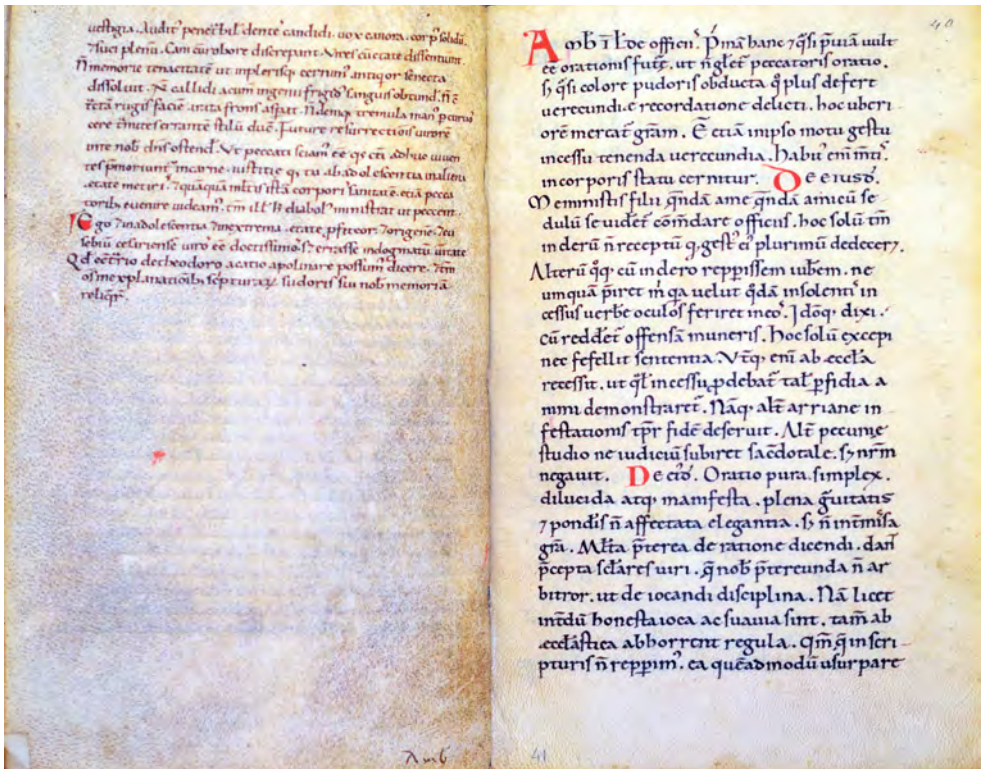 uestigia. Auditꝰ penetͬbil. dentes candidi. uox canora. corpꝰ solidū.
⁊ suci plenū. Cani cū robore discrepant. Vires cū etate dissentiunt.
N̄ memorie tenacitatē ut in plerisq; cernimꝰ antiqͥor senecta
dissoluit. N̄ callidi acumen ingenii frigidꝰ sanguis obtundit. n̄ ē
tētā rugis faciē arata frons asperat. n̄ deniq; tremula manꝰ p curuos
cere tͣmites errantē stilū duc̄. Future resurrectiōis uirorē
in te nob̄ dn̄s ostend̄. Vt peccati sciam̄ eē q̇ cēti adhuc uiuen
tes p̄moriunt̄ in carne. iustitie q; tu ab adolescentia in aliena
etate metiri. ⁊ quāquā ml̄tis istā corporis sanitatē. etiā pecca
toribꝰ euenire uideam̄. tm̄ ill̄ h̄ diabolꝰ ministrat ut peccent.
Ego ⁊ in adolescentia ⁊ in extrema. etate p̄fiteor. ⁊ origenē ⁊ eu
sebiū cesariensē uiros eē doctissimos ⁊ errasse in dogmatū uītate
Qd̄ ecͦtrͣrio de theodoro acatio apolinare possum̄ dicere. ⁊ tm̄
om̄s in explanationib; scͥpturaꝝ sudoris sui nob̄ memoriā
reliqͬ.
Amb̄
40
Amb̄ I l̄ de officiis. P̄mā hanc ⁊ q̄si p̄uiā uult
eē orationis futͬe. ut n̄ glet̄ peccatoris oratio.
sꝫ q̄si colore pudoris obducta. q̇ plus defert
uerecundie recordatione delicti. hoc uberi
orē mercat̄ grām. Ē etiā in ipso motu gestu
incessu tenenda uerecundia. Habitꝰ enī mētiͥ.
in corporis statu cernitur. De eiusdͦ.
Meministis filii q̄ndā amē q̄ndā amicū se
dulū se uidet̄ cōm̄dare officiis. hoc solū tm̄
in clerū n̄ receptū q; gestꝰ eiꝰ plurimū dedeceret.
Alterū q̇q; cū in clero repp̄issem iubem̄. ne
umquā p̄iret m̄ q̇a uelut q̇dā insolentiͥs in
cessus uerbere oculos feriret meos. Idōq; dixi.
cū reddet̄ offensā muneris. Hoc solū excepi
nec fefellit sententia. Vt̄q; enī ab eccl̄a
recessit. ut q̇l̄ incessu ꝓdebat̄ tal̄ p̄fidia a
nimi demonstraret̄. Nāq; alt̄ arriane in
festationis tp̄r fidē deseruit. Alt̄ pecunie
studio ne iudiciū subiret sac̄dotale. sꝫ nr̄m
negauit. De eͦdͦ. Oratio pura. simplex.
dilucida atq; manifesta. plena gͣuitatis
⁊ pondis n̄ affectata elegantia. sꝫ n̄ intmͥsa
grā. Ml̄ta p̄terea de ratione dicendi. dan̄t
p̄cepta sc̄lares uiri. q̄ nob̄ p̄tereunda n̄ ar
bitror. ut de iocandi disciplina. Nā licet
intdū honesta ioca ac suauia sint. tam̄ ab
ecclāstica abhorrent regula. Qm̄ q̄ in scri-
pturis n̄ repp̄im̄ꝰ. ea quēadmodū usurpare
41